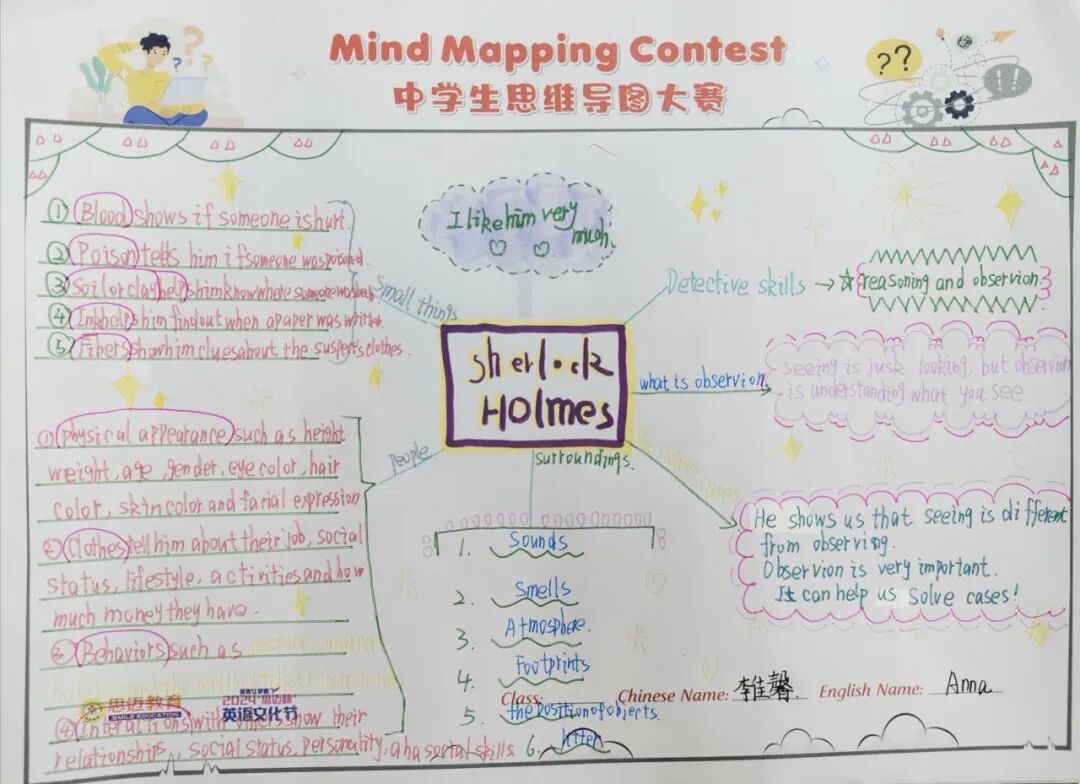 Mind Mapping Contest
中学生思维导图大赛
??
!!
I like him very
much.
① Blood shows if someone is hurt.
② Poison tells him if someone was poisoned.
③ Soil or clay helps him know where someone
④ Ink helps him find out when a paper was written.
⑤ Fibers show him clues about the suspect's clothes.
Small things
Sherlock
Holmes
Detective skills → ☆ reasoning and observion.
what is observion
seeing is jusk looking, but observion
is understanding what you see.
He shows us that seeing is different
from observing.
Observion is very important.
It can help us solve cases!
people
① physical appearance such as height
weight, age, gender, eye color, hair
color, skin color and facial expression
② Clothes tell him about their job, social
status, lifestyle, activities and how
much money they have.
③ Behaviors such as gesture, manner
④ Interactions with others show their
relationships, social status, personality, and social skills
surroundings.
1. Sounds
2. Smells
3. Atmosphere.
4. Footprints
5. the position of objects.
6. litter
思迈教育
SMILE EDUCATION
2024"思迈杯"
英语文化节
Class:
Chinese Name: 李馨
English Name: Anna